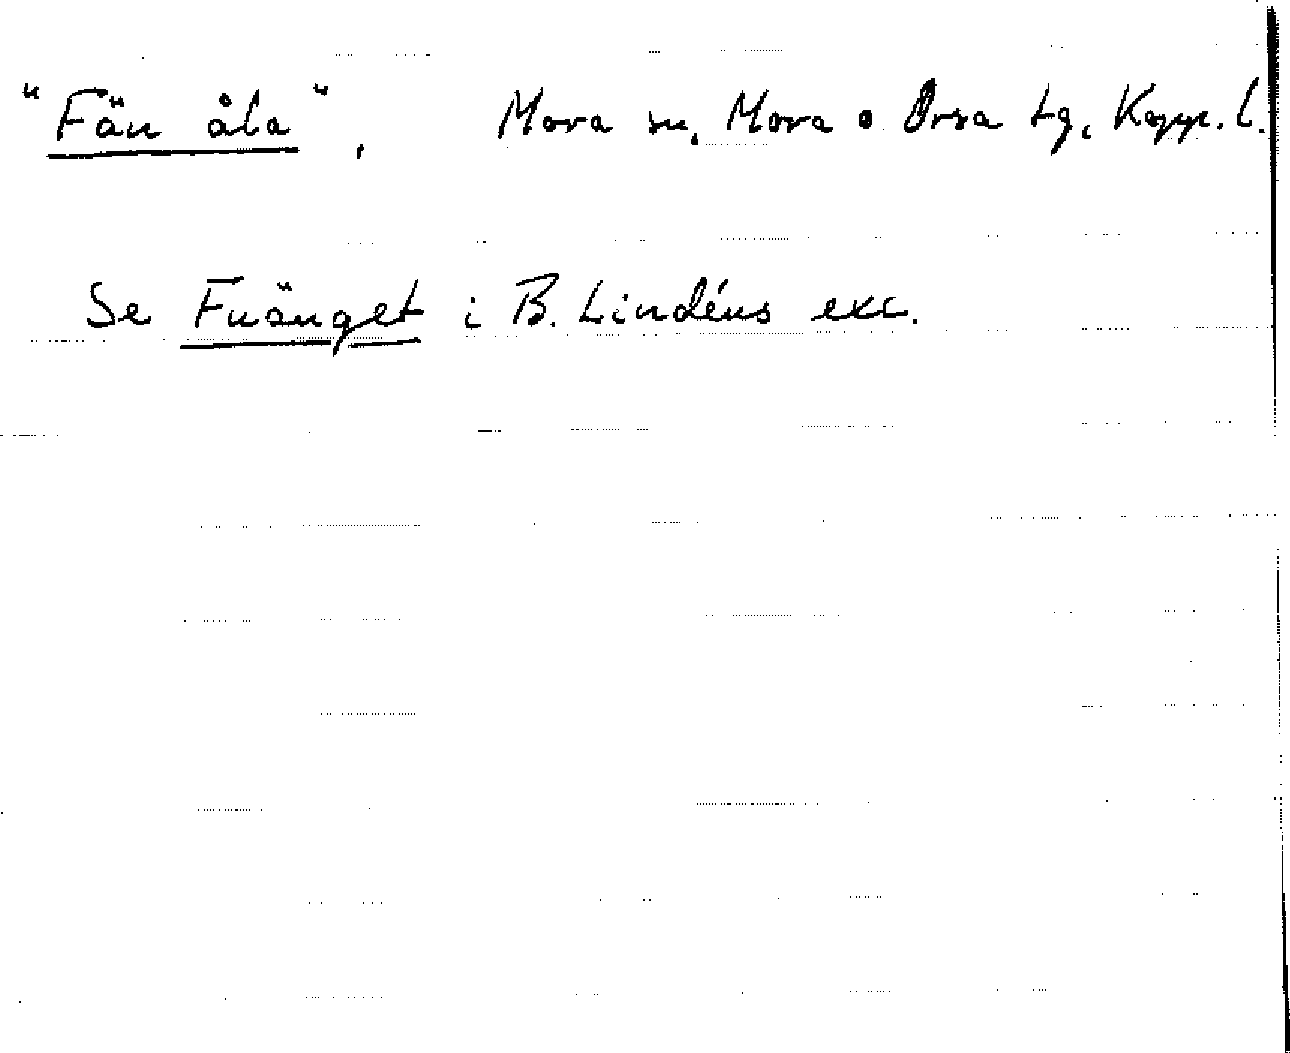 "Fän åla", Mora sn. Mora o Orsa tg. Kopp. l.
Se Fnänget i B. Lindéns exc.